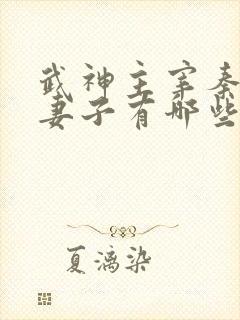 武神主宰秦
妻子有哪些
夏漓染